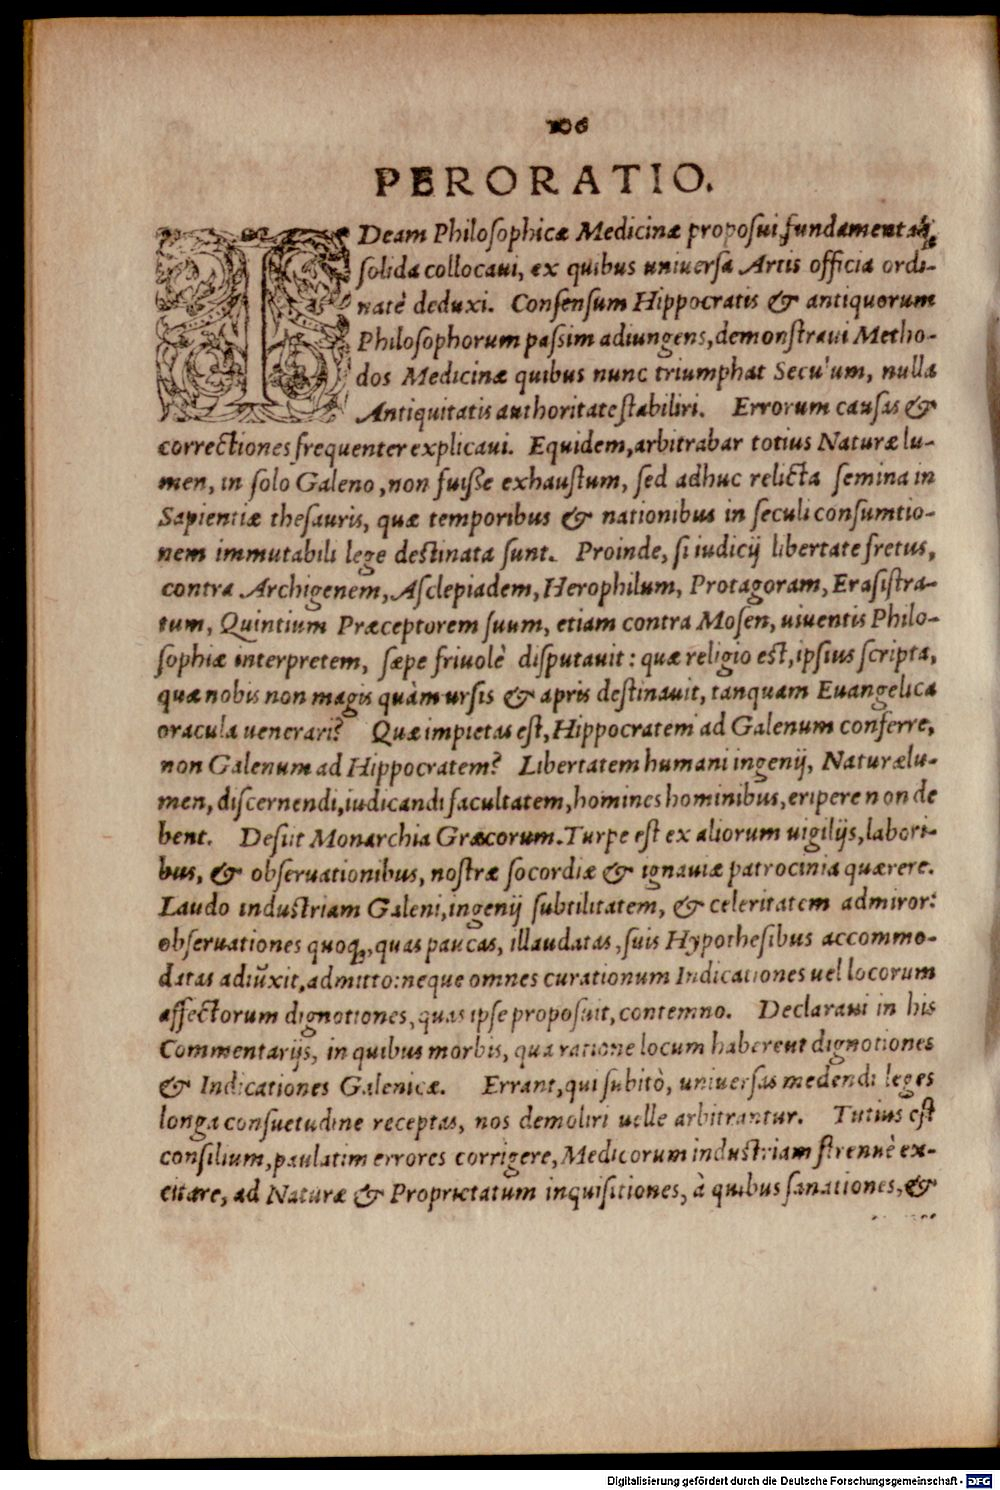 106
PERORATIO.
IDeam Philosophicæ Medicinæ proposui, fundamentaq;
solida collocaui, ex quibus universa Artis officia ordi-
natè deduxi. Consensum Hippocratis & antiquorum
Philosophorum passim adiungens, demonstraui Metho-
dos Medicinæ quibus nunc triumphat Seculum, nulla
Antiquitatis authoritate stabiliri. Errorum causas &
correctiones frequenter explicaui. Equidem, arbitrabar totius Naturæ lu-
men, in solo Galeno, non fuisse exhaustum, sed adhuc relicta semina in
Sapientiæ thesauris, quæ temporibus & nationibus in seculi consumtio-
nem immutabili lege destinata sunt. Proinde, si iudicij libertate fretus,
contra Archigenem, Asclepiadem, Herophilum, Protagoram, Erasistra-
tum, Quintium Præceptorem suum, etiam contra Mosen, uiuentis Philo-
sophiæ interpretem, sæpe friuolè disputauit: quæ religio est, ipsius scripta,
quæ nobis non magis quàm ursis & apris destinauit, tanquam Euangelica
oracula uenerari? Quæ impietas est, Hippocratem ad Galenum conferre,
non Galenum ad Hippocratem? Libertatem humani ingenij, Naturæ lu-
men, discernendi, iudicandi facultatem, homines hominibus, eripere non de
bent. Desiit Monarchia Græcorum. Turpe est ex aliorum uigilijs, labori-
bus, & obseruationibus, nostræ socordiæ & ignauiæ patrocinia quærere.
Laudo industriam Galeni, ingenij subtilitatem, & celeritatem admiror:
obseruationes quoq;, quas paucas, illaudatas, suis Hypothesibus accommo-
datas adiũxit, admitto: neque omnes curationum Indicationes uel locorum
affectorum dignotiones, quas ipse proposuit, contemno. Declaraui in his
Commentarijs, in quibus morbis, qua ratione locum haberent dignotiones
& Indicationes Galenicæ. Errant, qui subitò, universas medendi leges
longa consuetudine receptas, nos demoliri uelle arbitrantur. Tutius est
consilium, paulatim errores corrigere, Medicorum industriam strenuè ex-
citare, ad Naturæ & Proprietatum inquisitiones, à quibus sanationes, &
Digitalisierung gefördert durch die Deutsche Forschungsgemeinschaft - DFG